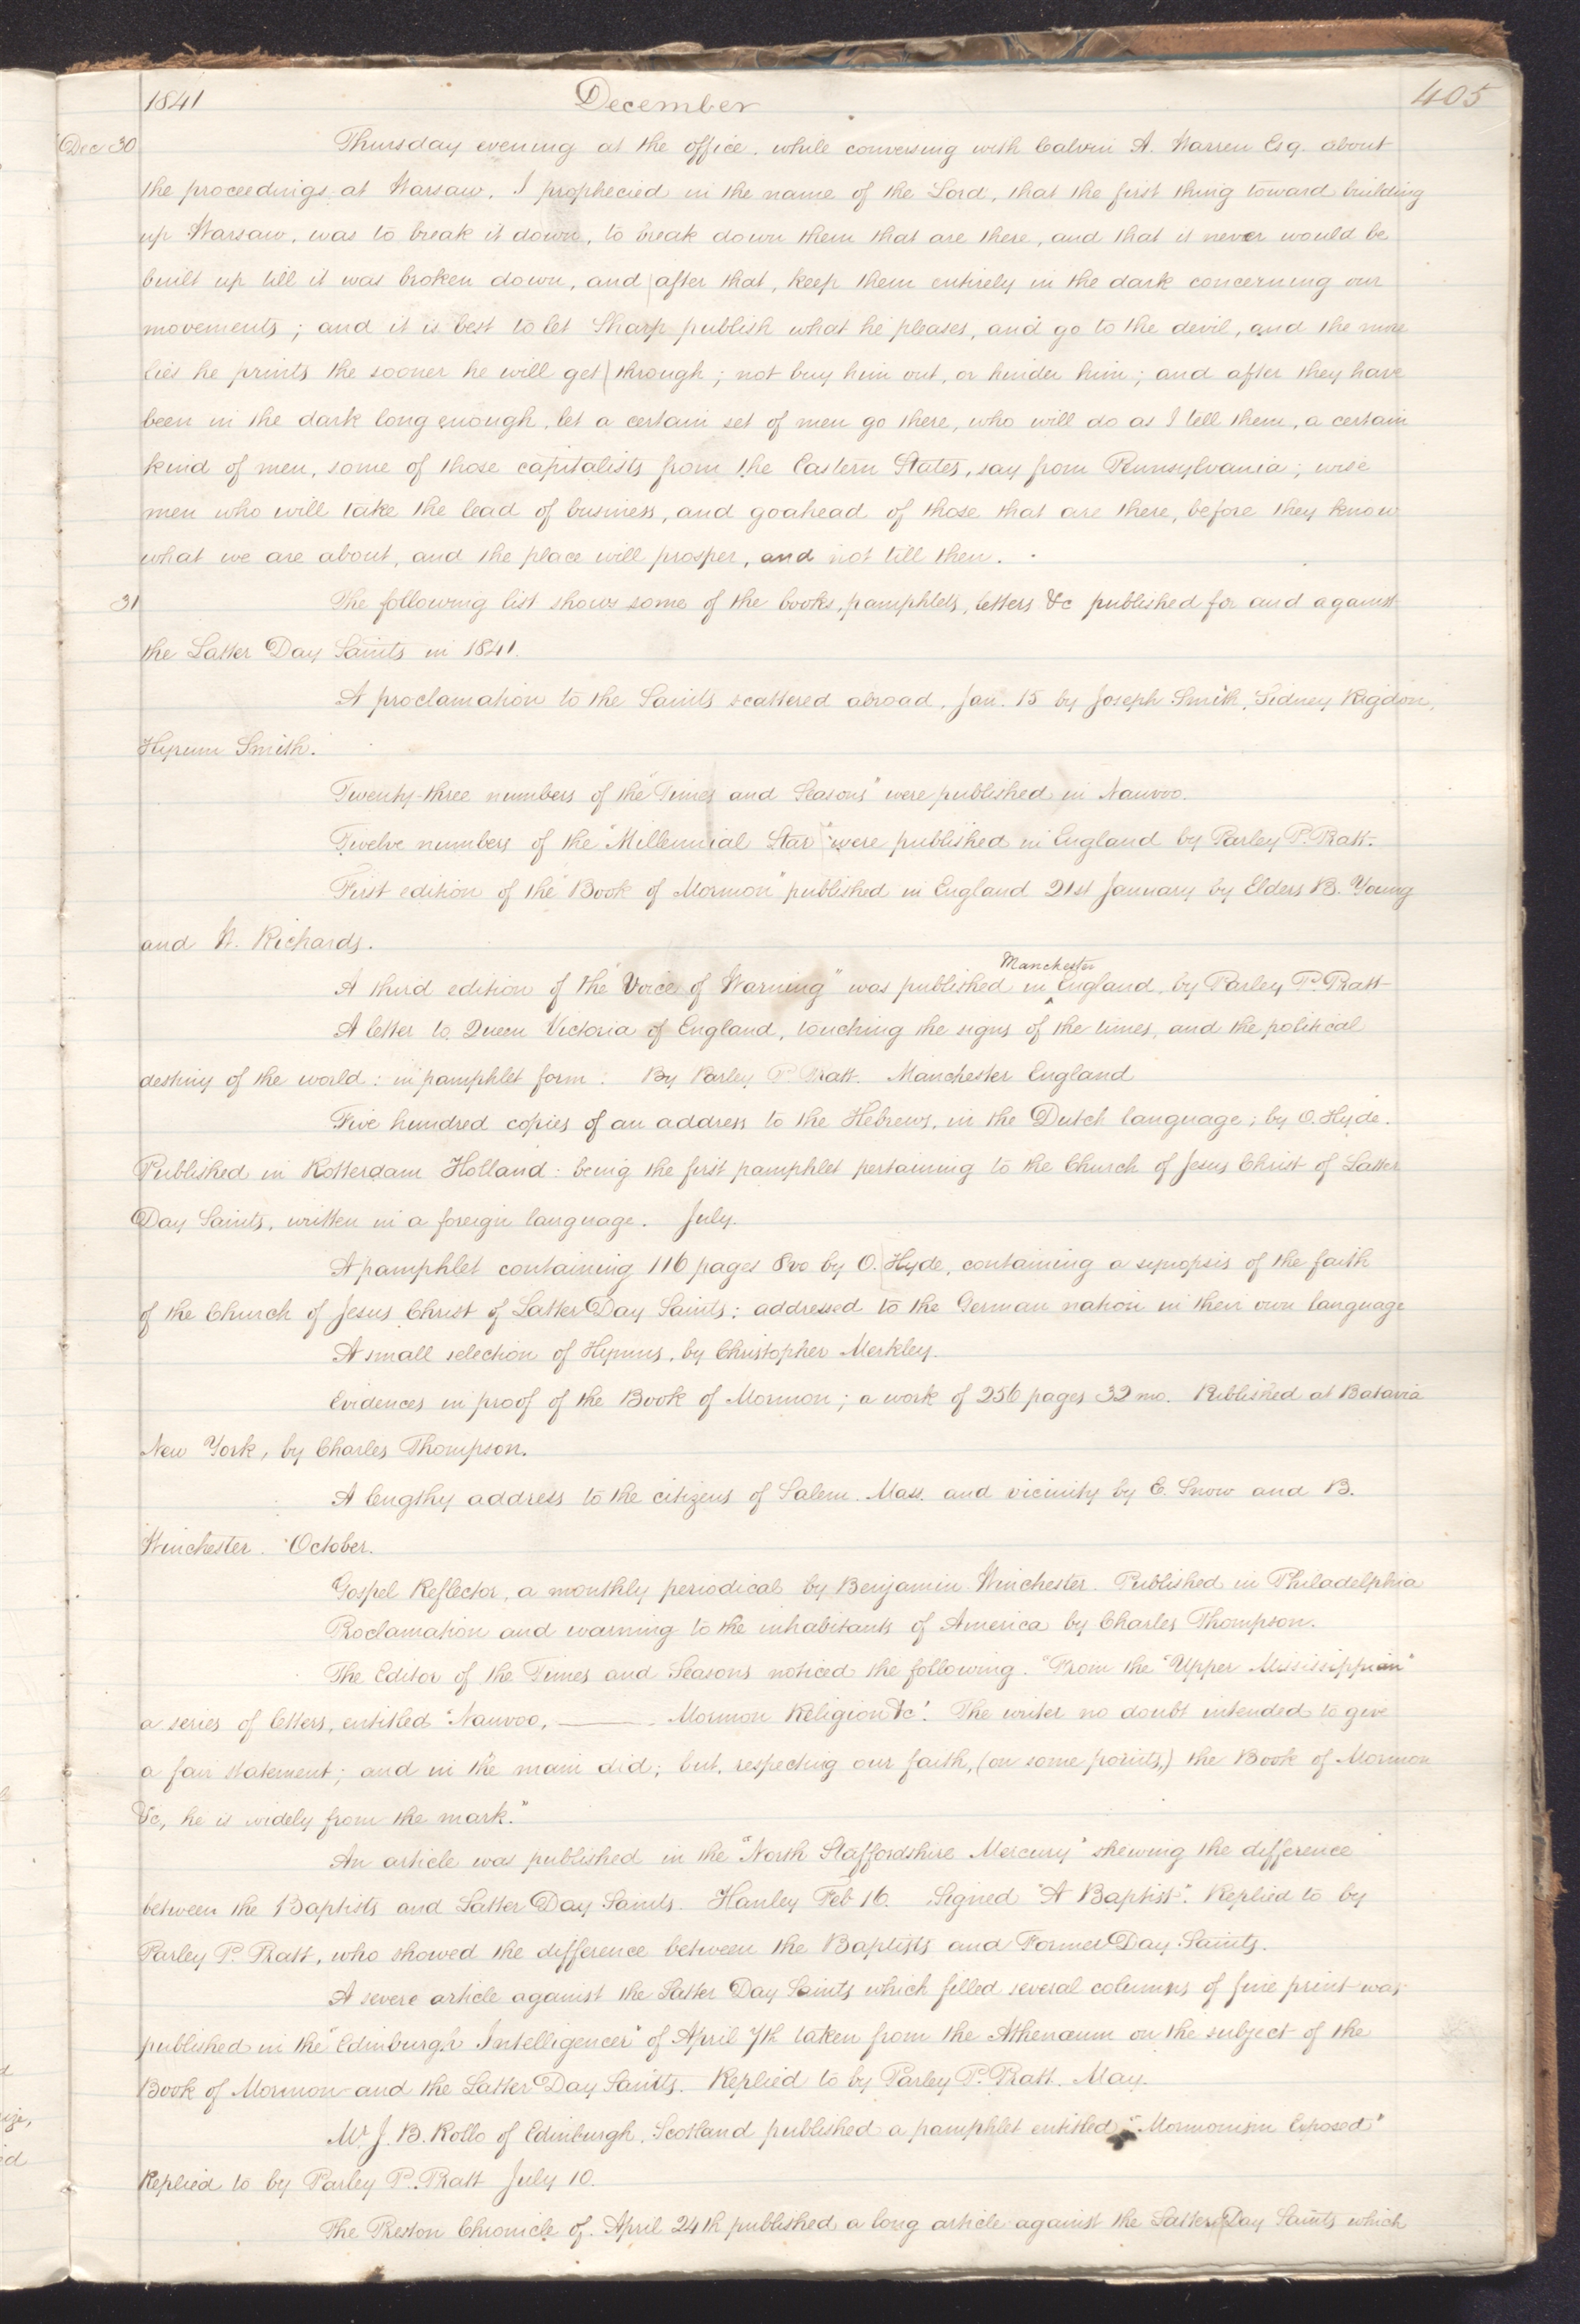 1841 December 405
Dec 30 Thursday evening at the office. while conversing with Calvin A. Warren Esq. about
the proceedings at Warsaw, I prophecied in the name of the Lord, that the first thing toward building
up Warsaw, was to break it down, to break down them that are there, and that it never would be
built up till it was broken down, and after that, keep them entirely in the dark concerning our
movements; and it is best to let Sharp publish what he pleases, and go to the devil, and the more
lies he prints the sooner he will get through; not buy him out, or hinder him; and after they have
been in the dark long enough, let a certain set of men go there, who will do as I tell them, a certain
kind of men, some of those capitalists from the Eastern States, say from Pennsylvania; wise
men who will take the lead of business, and goahead of those that are there, before they know
what we are about, and the place will prosper, and not till then.
31 The following list shows some of the books, pamphlets, letters &c published for and against
the Latter Day Saints in 1841.
A proclamation to the Saints scattered abroad, Jan. 15 by Joseph Smith, Sidney Rigdon,
Hyrum Smith.
Twenty-three numbers of the "Times and Seasons" were published in Nauvoo.
Twelve numbers of the "Millennial Star" were published in England by Parley P. Pratt.
First edition of the "Book of Mormon" published in England 21st January by Elders B. Young
and W. Richards.
Manchester
A third edition of the "Voice of Warning" was published in ^ England, by Parley P. Pratt
A letter to Queen Victoria of England, touching the signs of the times, and the political
destiny of the world: in pamphlet form. By Parley P. Pratt. Manchester England
Five hundred copies of an address to the Hebrews, in the Dutch language; by O. Hyde.
Published in Rotterdam Holland: being the first pamphlet pertaining to the Church of Jesus Christ of Latter
Day Saints, written in a foreign language. July.
A pamphlet containing 116 pages 8vo by O. Hyde, containing a synopsis of the faith
of the Church of Jesus Christ of Latter Day Saints: addressed to the German nation in their own language
A small selection of Hymns, by Christopher Merkley.
Evidences in proof of the Book of Mormon; a work of 256 pages 32 mo. Published at Batavia
New York, by Charles Thompson.
A lengthy address to the citizens of Salem. Mass. and vicinity by E. Snow and B.
Winchester. October.
Gospel Reflector, a monthly periodical by Benjamin Winchester. Published in Philadelphia
Proclamation and warning to the inhabitants of America by Charles Thompson.
The Editor of the Times and Seasons noticed the following. "From the "Upper Mississippian"
a series of letters, entitled "Nauvoo, ——— Mormon Religion &c". The writer no doubt intended to give
a fair statement; and in the main did; but, respecting our faith, (on some points,) the Book of Mormon
&c, he is widely from the mark."
An article was published in the "North Staffordshire Mercury" shewing the difference
between the Baptists and Latter Day Saints. Hanley Feb 16. Signed "A Baptist". Replied to by
Parley P. Pratt, who showed the difference between the Baptists and Former Day Saints.
A severe article against the Latter Day Saints which filled several columns of fine print was
published in the "Edinburgh Intelligencer" of April 7th taken from the Athenæum on the subject of the
Book of Mormon and the Latter Day Saints. Replied to by Parley P. Pratt. May.
Mr J. B. Rollo of Edinburgh, Scotland published a pamphlet entitled "Mormonism Exposed"
Replied to by Parley P. Pratt July 10.
The Preston Chronicle of April 24th published a long article against the Latter Day Saints which